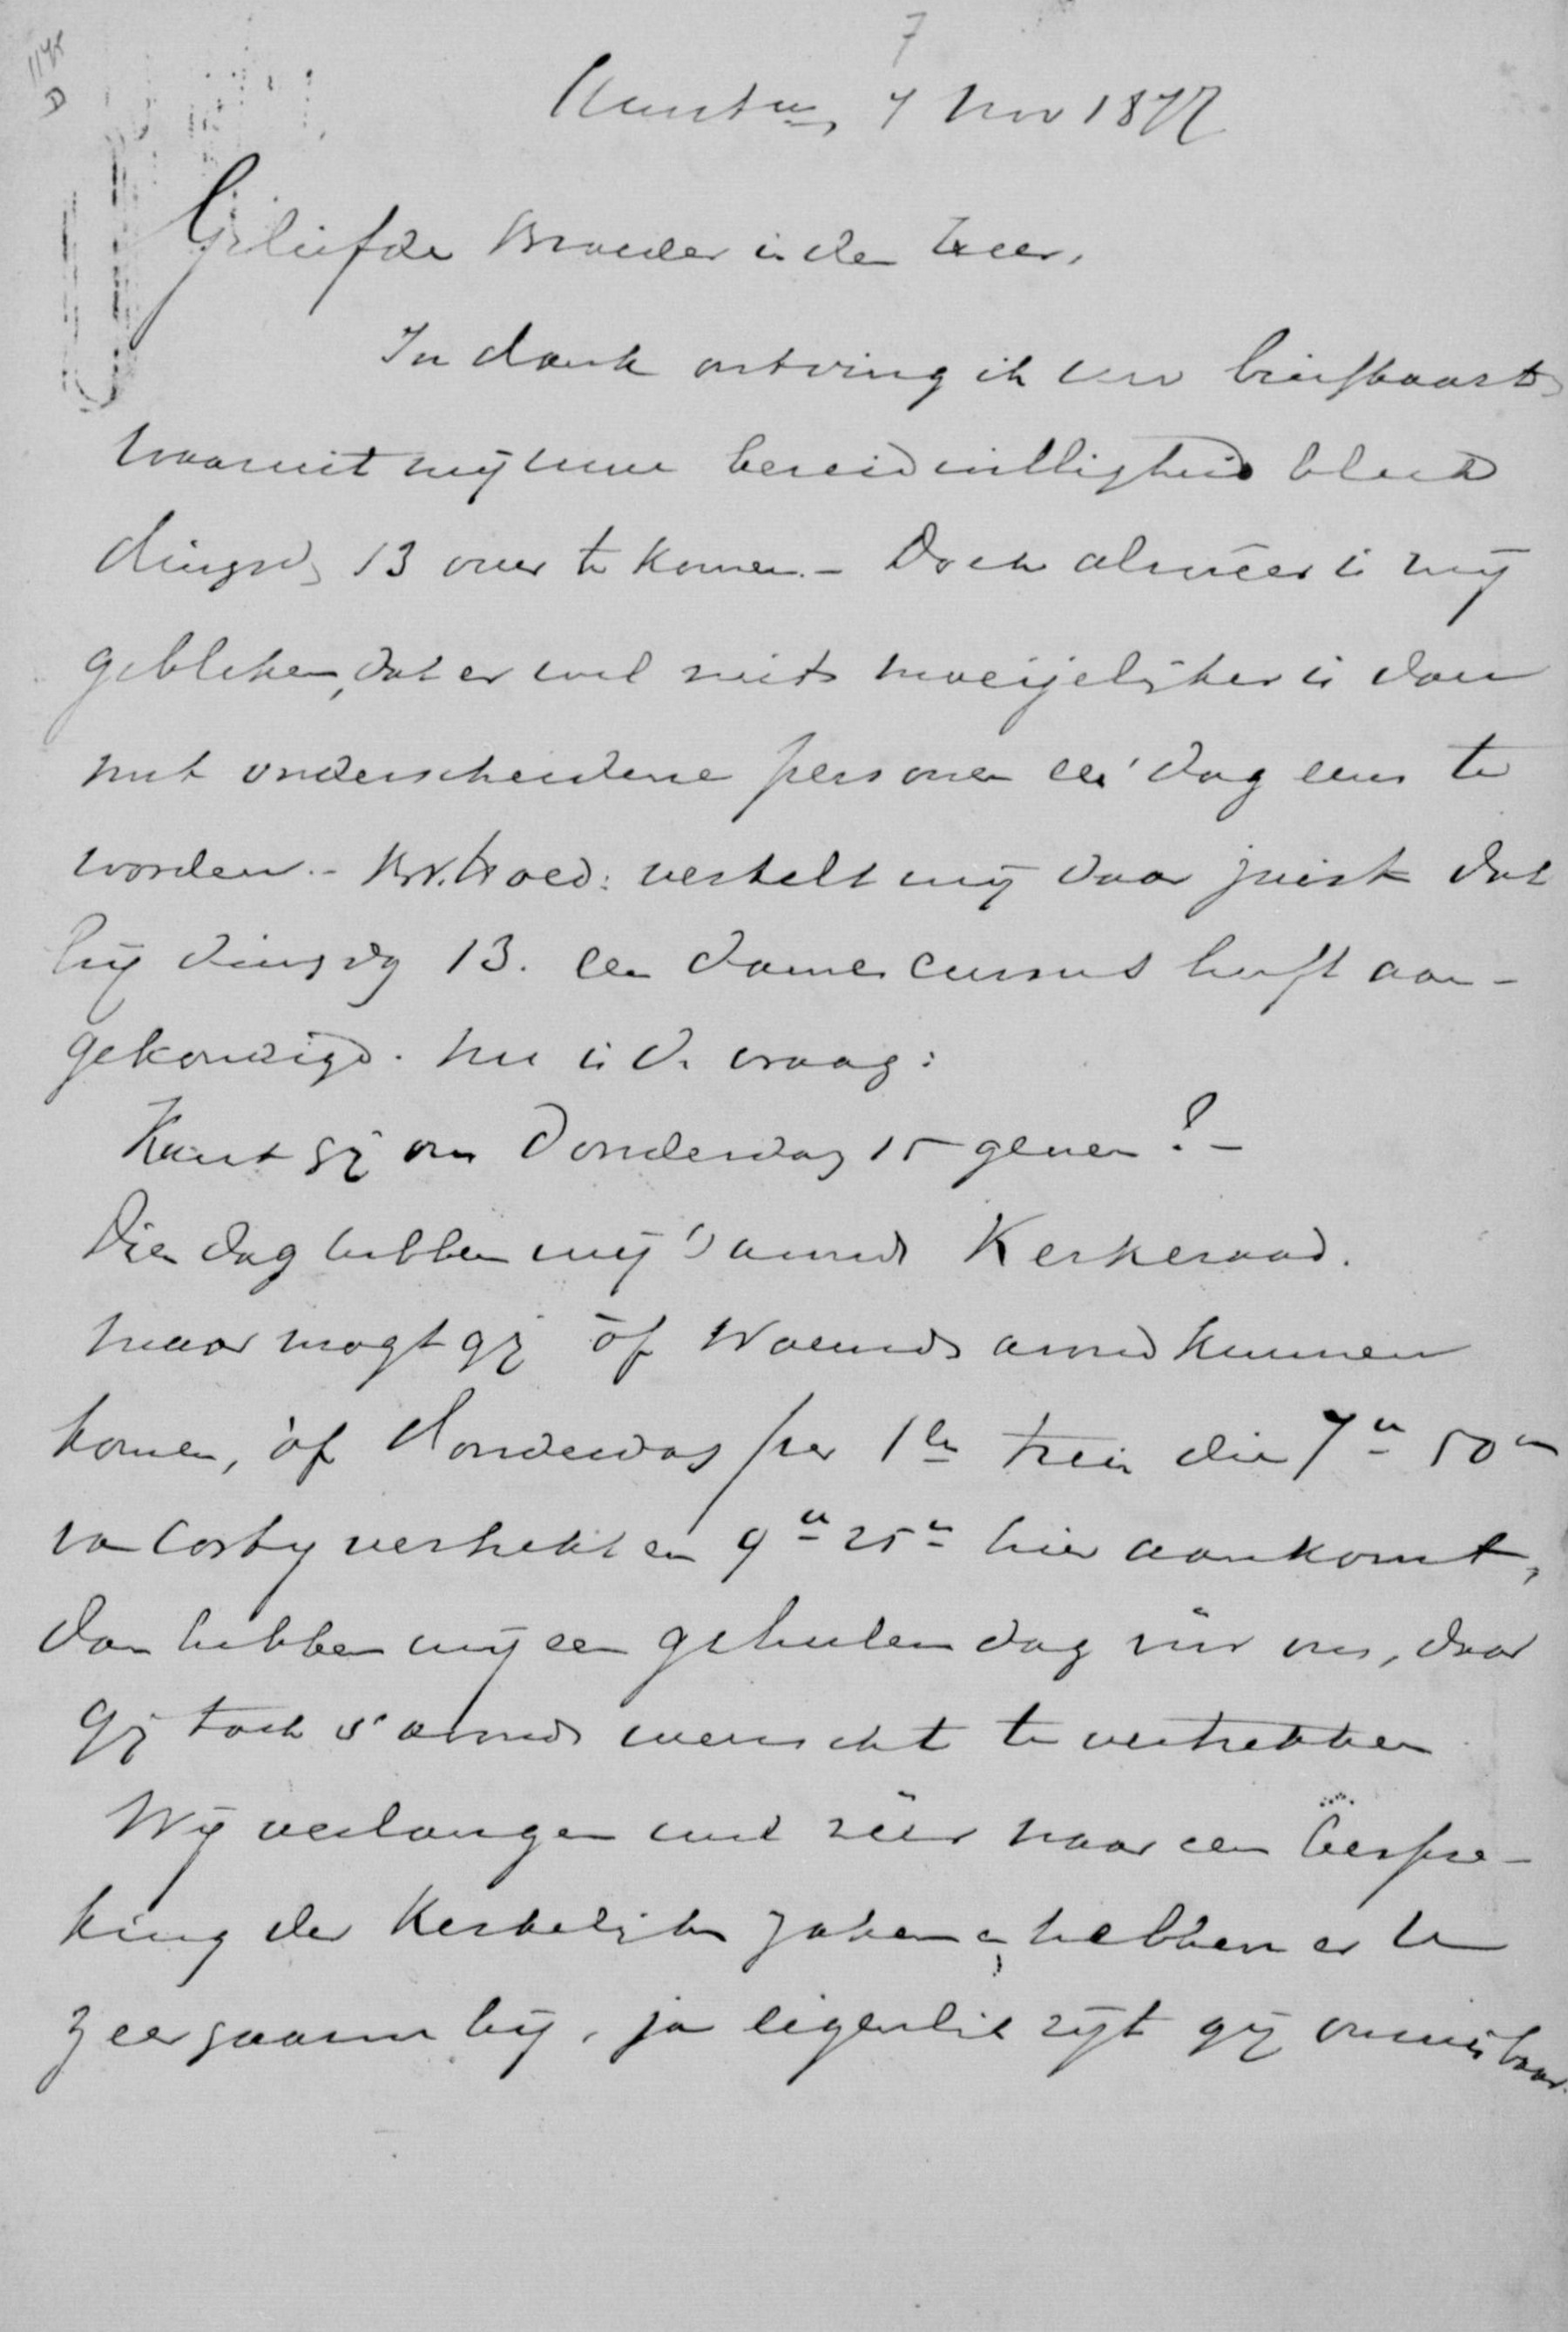 1175
D
7
7 Nov 1877
Geliefde Broeder in den Heer,
In dank ontving ik uw briefkaart
waaruit mij uwe bereidwilligheid bleek
dingsd. 13 over te komen. - Doch alweêr is mij
gebleken, dat er wel niets moeijelijker is dan
met onderscheidene personen één dag eens te
worden. - Br. Hoed: vertelt mij daar juist dat
hij dingsdg 13. een damescursus heeft aan-
gekondigd. Nu is de vraag:
Kunt gij ons Donderdag 15 geven? -
Dien dag hebben wij 's avonds Kerkeraad.
Maar mogt gij òf Woensds avond kunnen
komen, òf Donderdag per 1en trein die 7u 50m
van vertrekt en 9u 25m hier aankomt,
dan hebben wij een geheelen dag vóór ons, daar
gij toch 's avonds wenscht te vertrekken
Wij verlangen wel zéér naar een bespre-
king der Kerkelijke zaken en hebben er U
zeer gaarne bij, ja eigenlijk zijt gij onmisbaar.